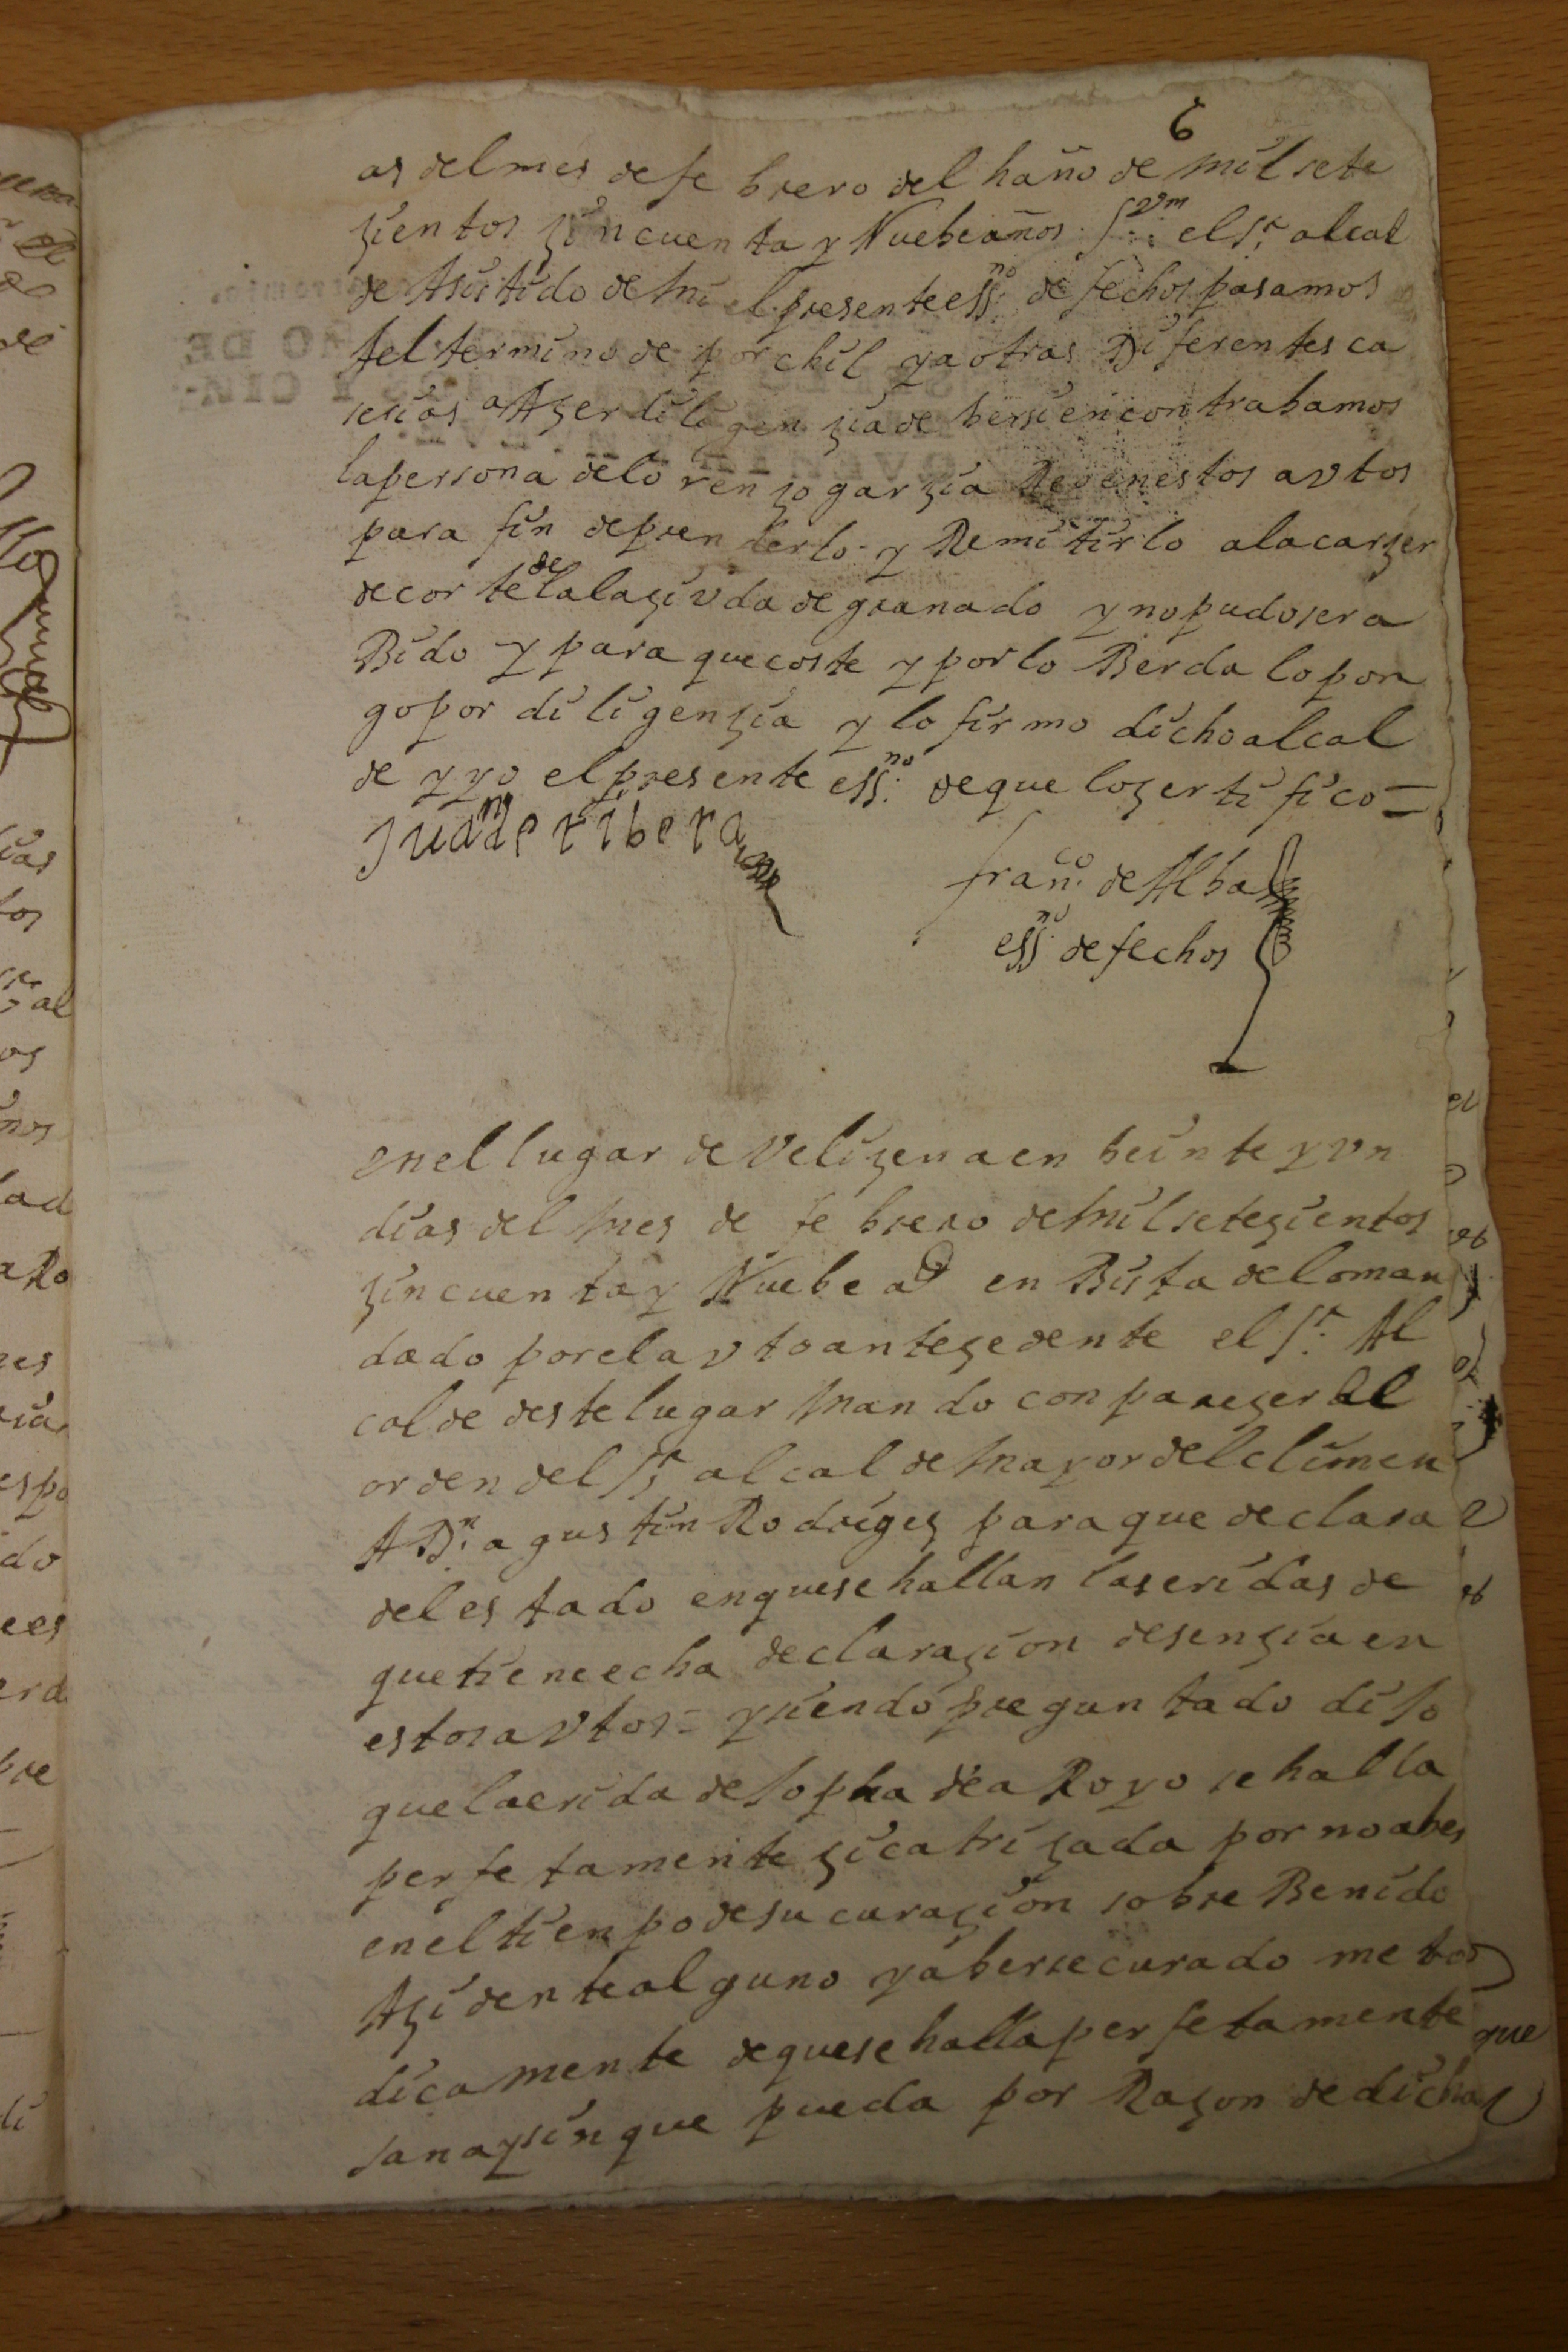 6
as del mes de febrero del haño de mil sete
zientos zincuenta y Nuebe años. Svm el Sr alcal
de Asistido de mi el presente essno de fechos pasamos
Ael termino de porchil y a otras Diferentes ca
serias a Azer diligenzia de ber si encontrabamos
la persona de lorenzo garzia Reo en estos avtos
para fin de prenderlo y Remitirlo a la carzer
de corte de la la zivda de granado y no pudo ser a
Bido y para que coste y por lo Berda lo pon
go por diligenzia y lo firmo dicho alcal
de y yo el presente essno de que lo zertifico =
Juan de ribera
franco de Alba
essno de fechos
en el lugar de Velizena en beinte y vn
dias del mes de febrero de mil setezientos
zincuenta y Nuebe as en Bista de lo man
dado por el avto antezedente el Sr Al
calde deste lugar mando conparezer al
orden del Sr alcalde mayor del climen
A Dn agustin Rodrigez para que declara
del estado en que se hallan las eridas de
que tiene echa declarazion desenzia en
estos avtos = y siendo preguntado diJo
que la erida de Jopha de aRoyo se halla
perfetamente zicatrizada por no aber
en el tienpo de su curazion sobre Benido
Azidente alguno y aberse curado meto
dicamente de que se halla perfetamente que
sana y sin que pueda por Razon de dicha